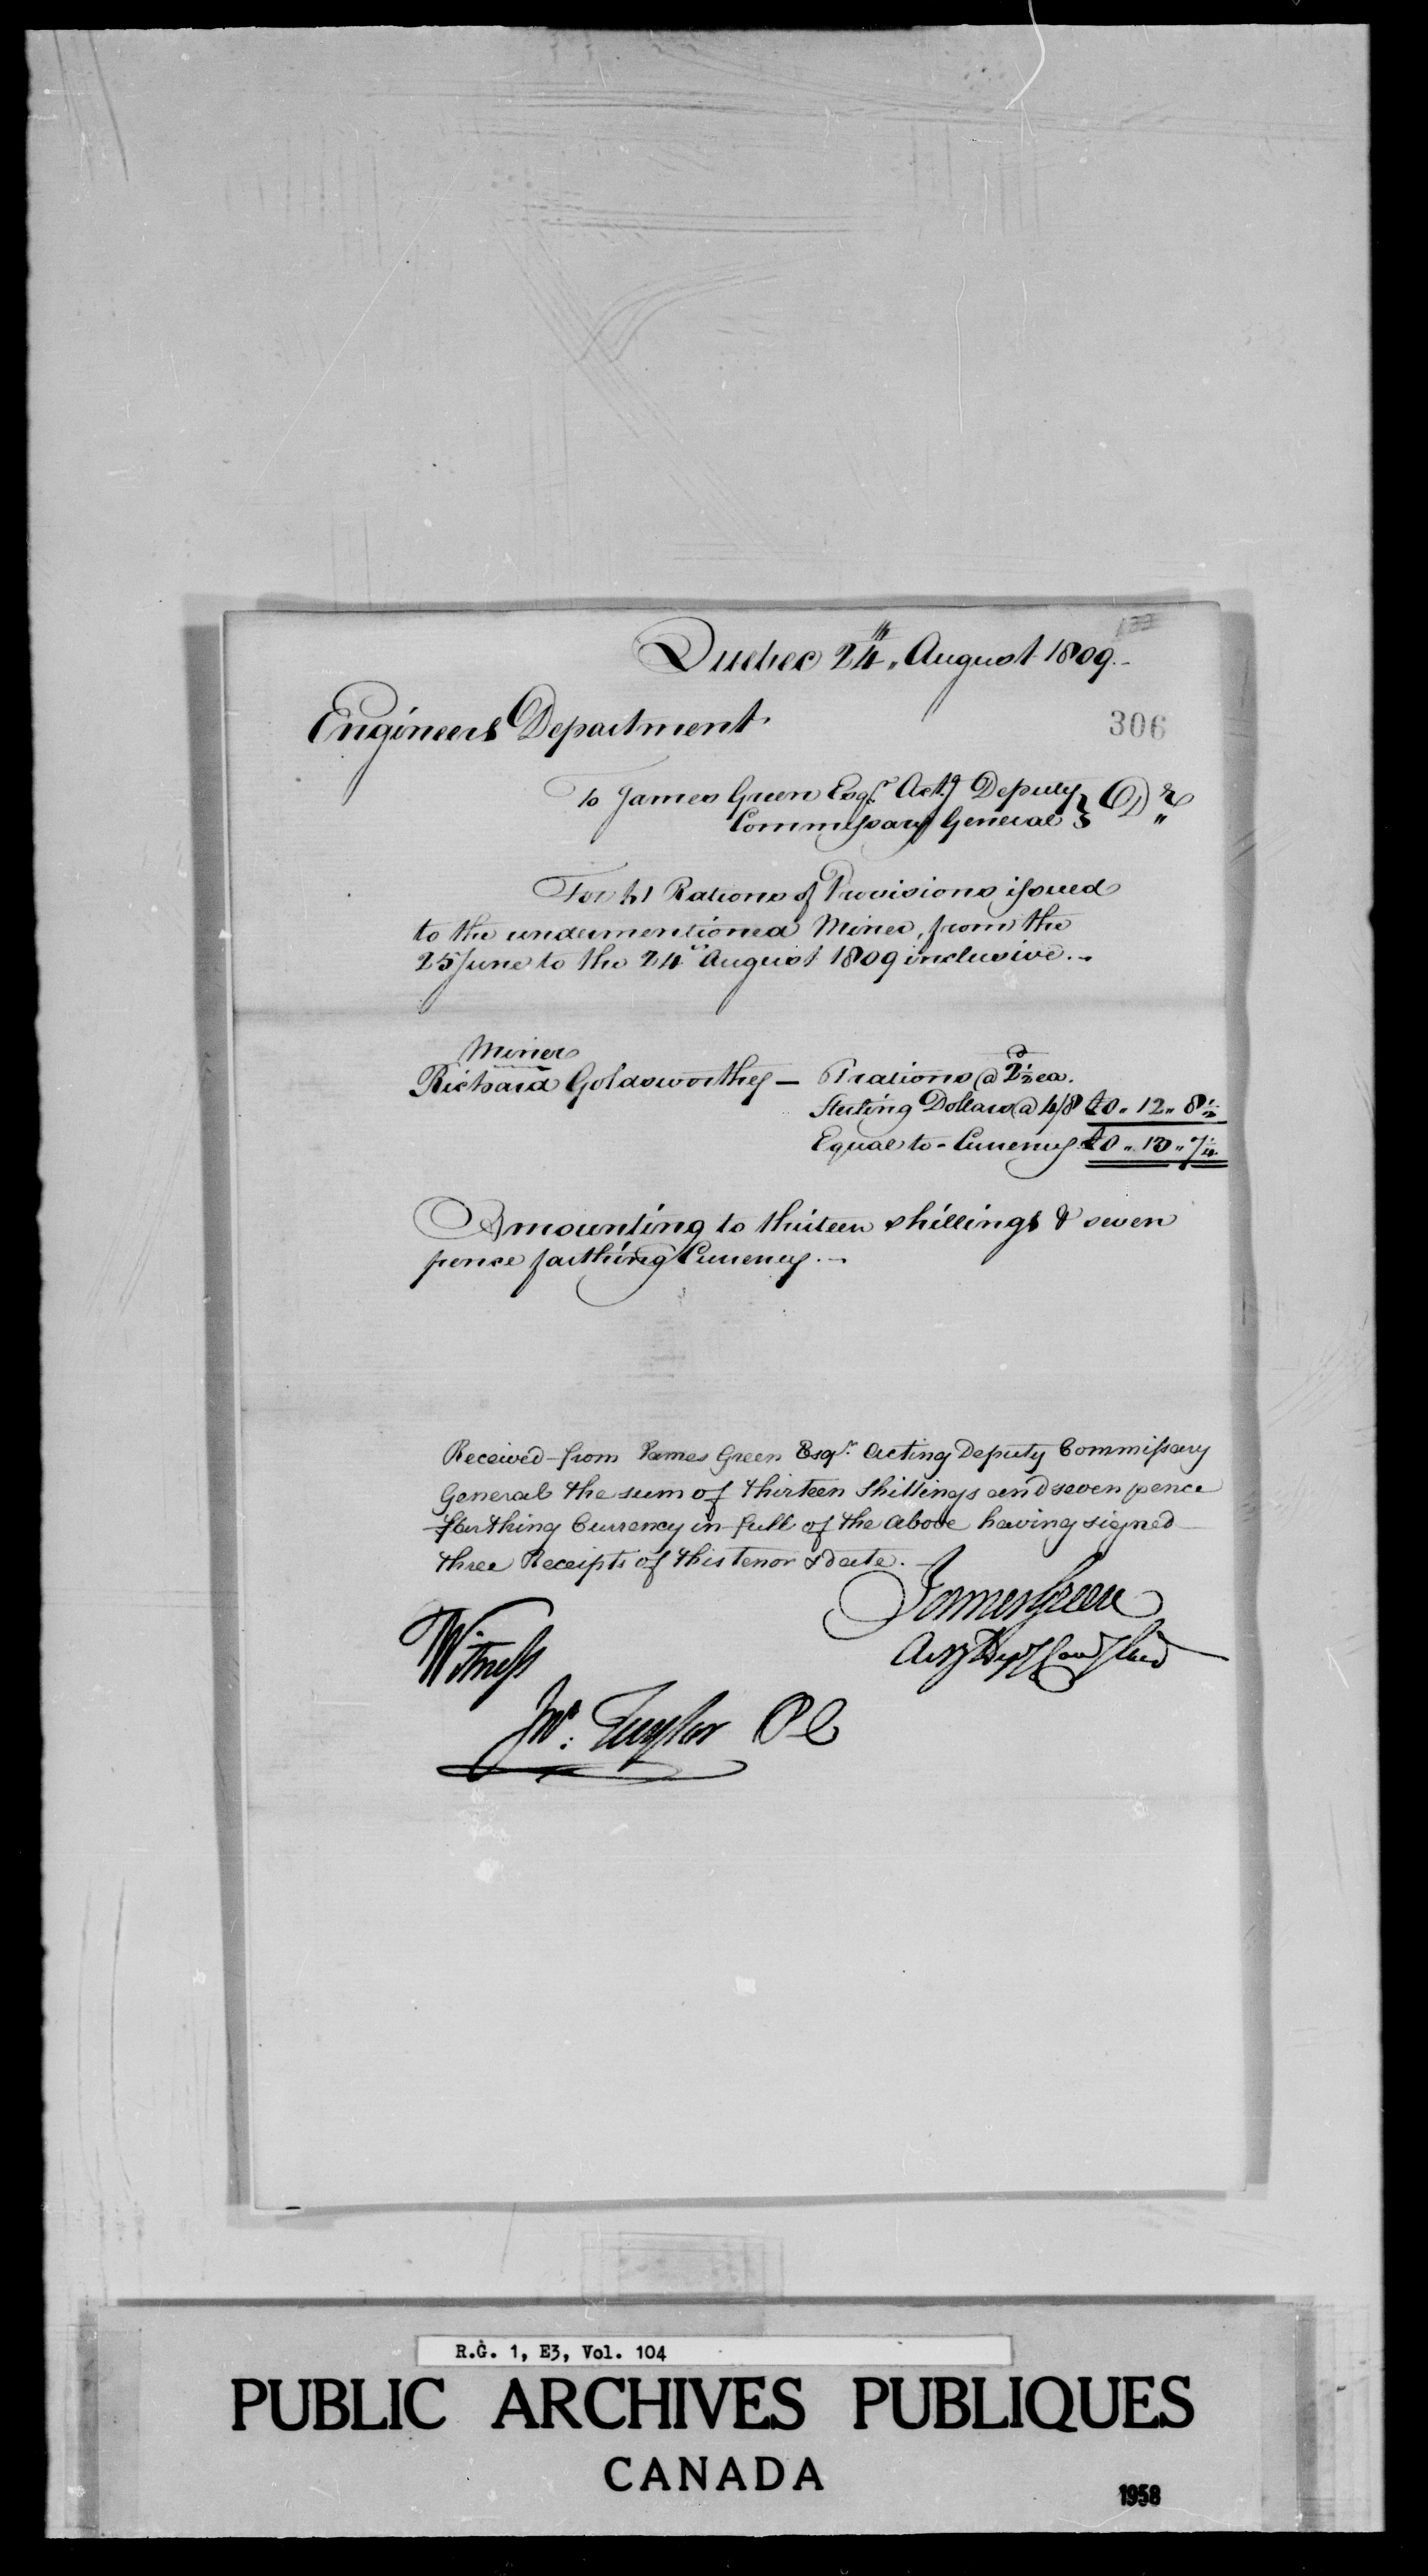 Quebec 24th August 1809.-
306
Engineers Department.
To James Green Esqr. Actg Deputy } Dr
Commissary General }
For 61 Rations of Provisions issued
to the undermentioned Miner, from the
25 June to the 24th August 1809 inclusive.-
Miner
Richard Goldsworthy — 61 rations @ 2½d ea.
Sterling Dollars @ 4/8 £0 " 12 " 8½
Equal to - Currency £0 " 13 " 7¼
Amounting to thirteen shillings & seven
pence farthing Currency.-
Received from James Green Esqr. Acting Deputy Commissary
General the sum of thirteen Shillings and seven pence
farthing Currency in full of the above having signed
three Receipts of this tenor & date.
James Green
Actg Depy Com Genl
Witness
Jno. Taylor
R.G. 1, E3, Vol. 104
PUBLIC ARCHIVES PUBLIQUES
CANADA
1958